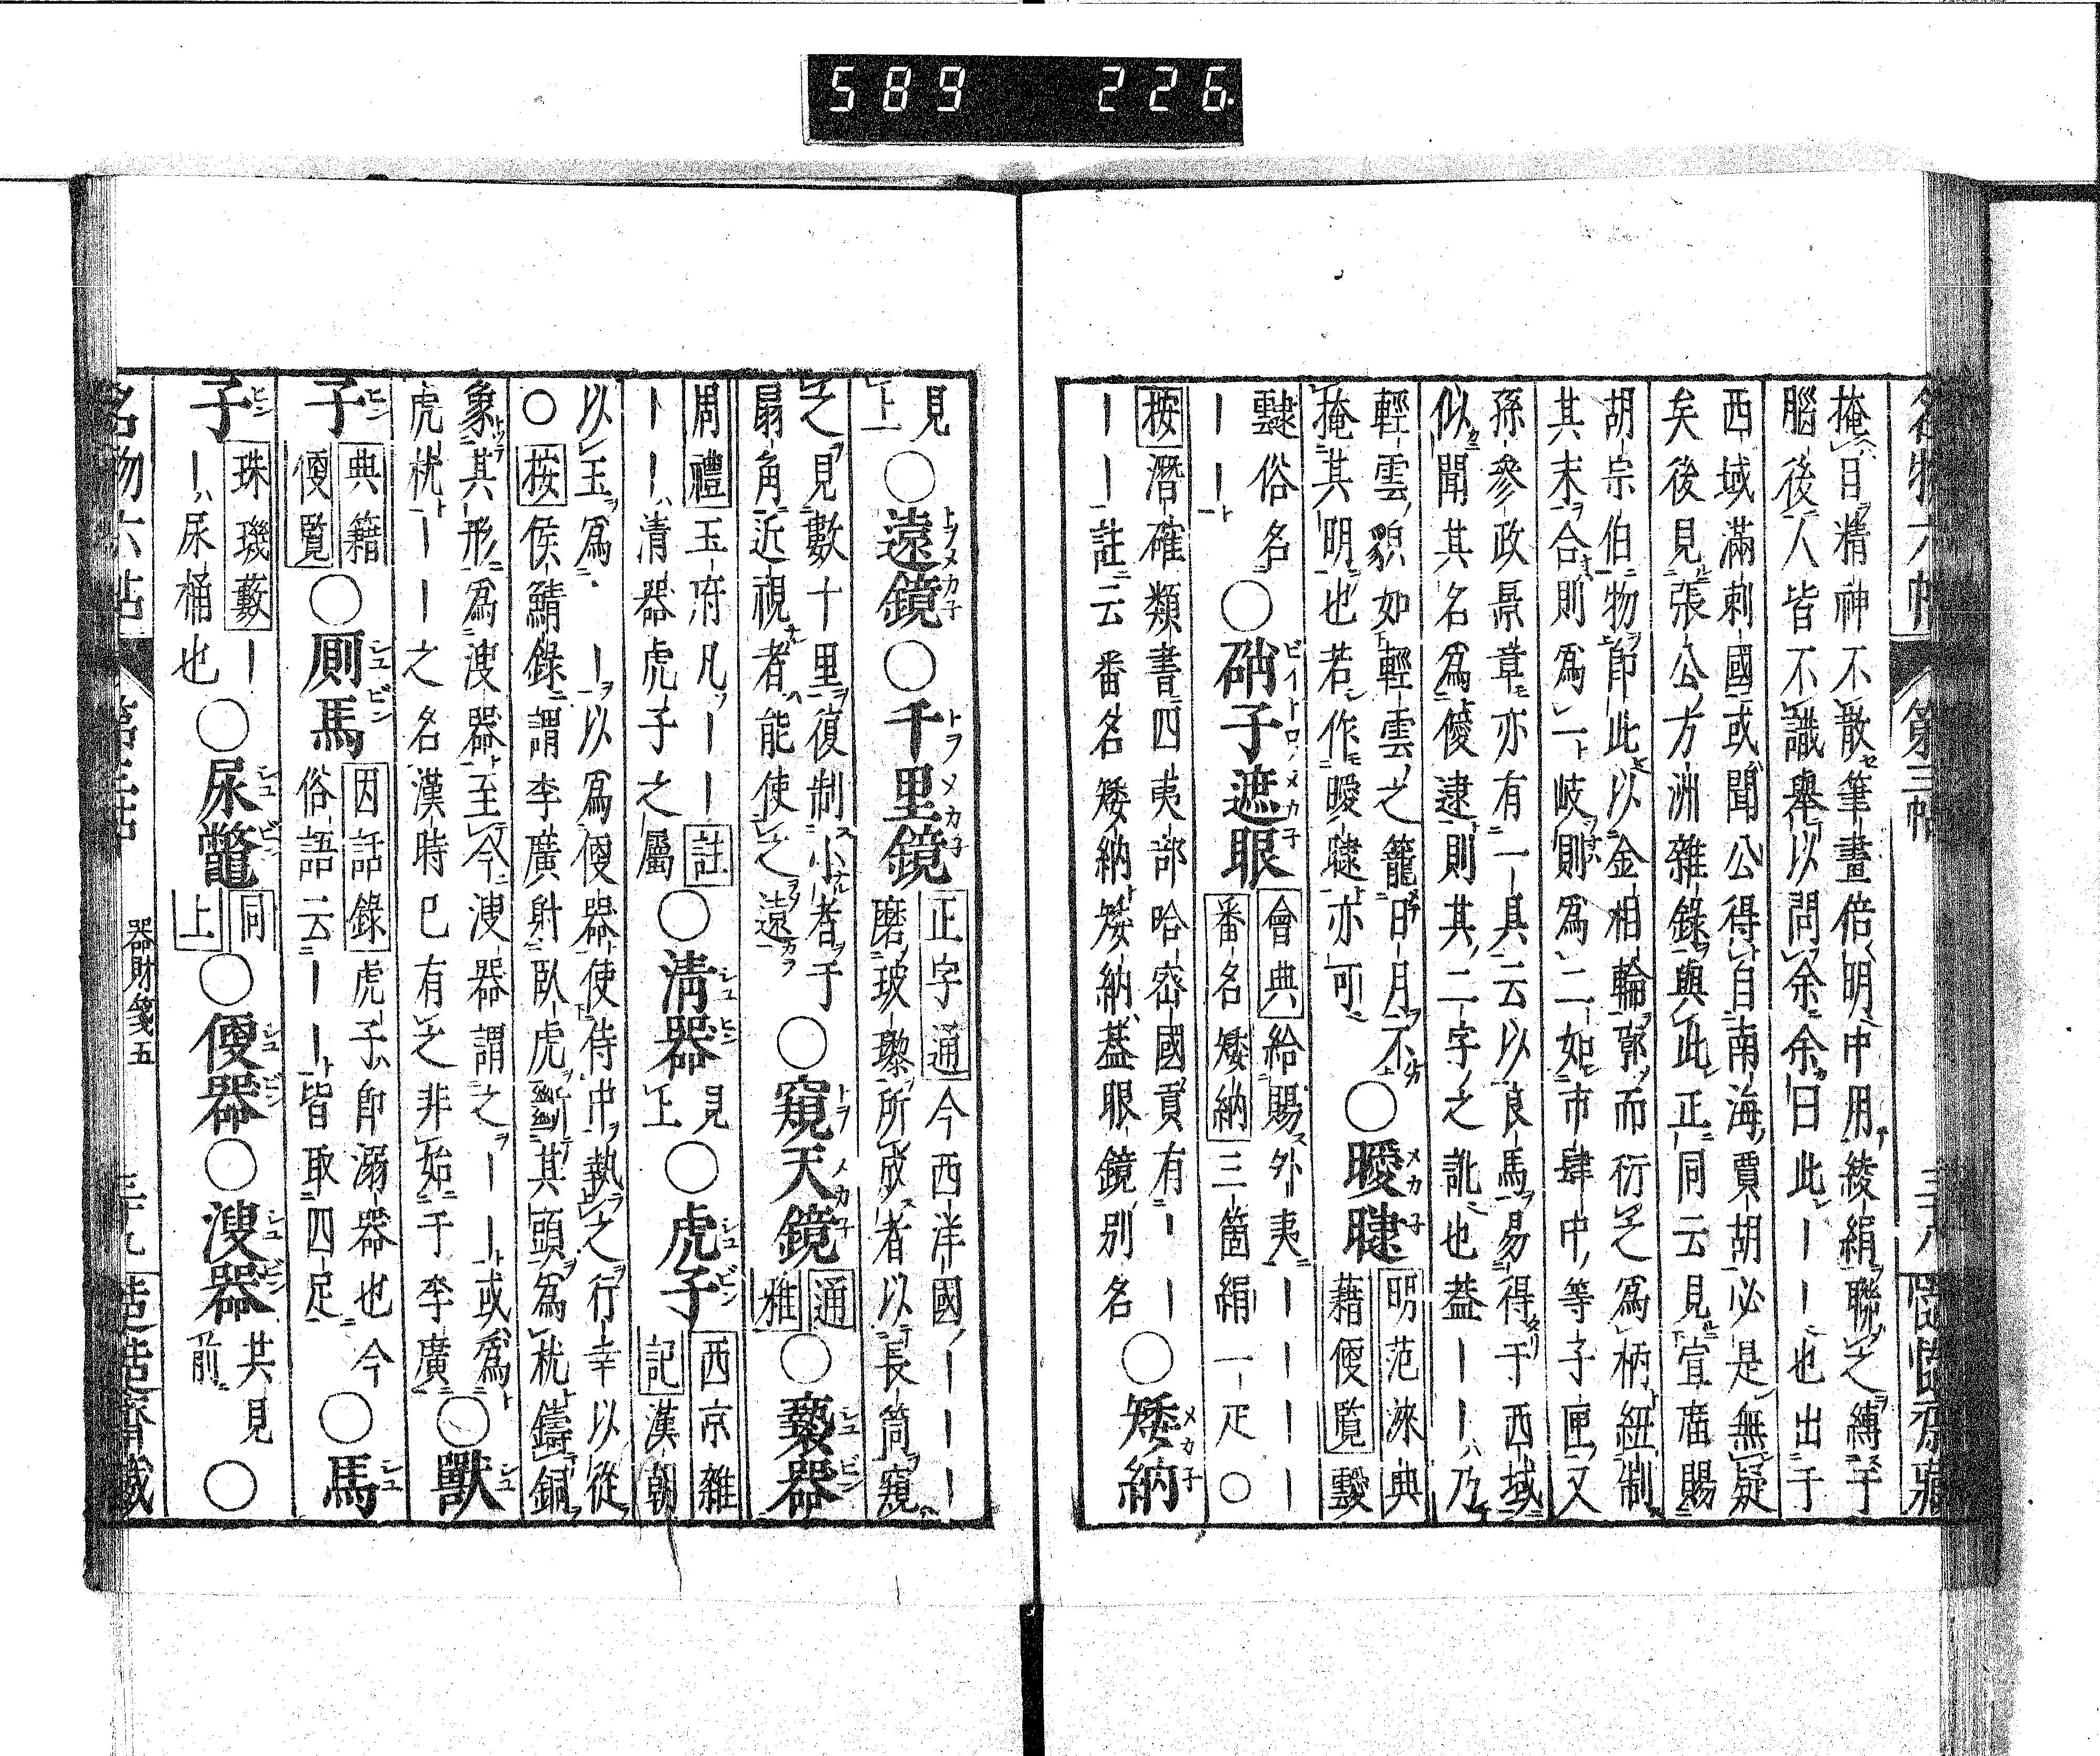 589 226
名物六帖 第三帖 三十八 藏
掩日精神不散筆畫倍明中用綾絹聯之縛于
腦後人皆不識舉以問余余曰此——也出于
西域滿刺國或聞公得自南海賈胡必是無疑
矣後見張公方洲雜錄與此正同云見宣廟賜
胡宗伯物卽此以金相輪郭而衍之爲柄紐制
其末合則爲一岐則爲二如市肆中等子匣又
孫參政景章亦有一具云以良馬易得于西域
似聞其名爲僾逮則其二字之訛也蓋——乃
輕雲貌如輕雲之籠日月不
掩其明也若作曖叇亦可
○曖㬣
明范淶典
籍便覽靉
靆俗名
——
○硝子遮眼
會典給賜外夷————
番名矮納三箇絹一疋○
按潛確類書四夷部哈密國貢有——
——註云番名矮納矮納蓋眼鏡別名
○矮納
見
上
○遠鏡○千里鏡
正字通今西洋國———
磨玻瓈所成者以長筒窺
之見數十里復制小者于
扇角近視者能使之遠
○窺天鏡
通
雅
○褻器
周禮玉府凡——註
——清器虎子之屬
○淸器
見
上
○虎子
西京雜
記漢朝
以玉爲——以爲便器使侍中執之行幸以從
○按侯鯖錄謂李廣射臥虎斷其頭爲枕鑄銅
象其形爲溲器至今溲器謂之——或爲
虎枕——之名漢時已有之非始于李廣
○獸
子
典籍
便覽
○厠馬
因話錄虎子卽溺器也今
俗語云——皆取四足
○馬
子
珠璣藪—
—尿桶也
○尿鼈
同
上
○便器○溲器
共見
前
○
名物六帖 第三帖 器財箋五 三十九 齋藏